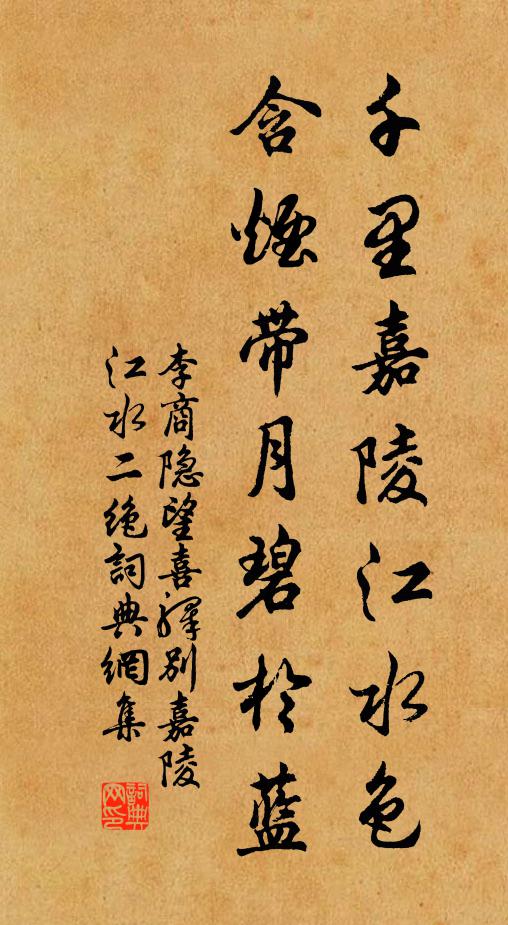 千里嘉陵江水色
含煙带月碧於藍
李商隐望喜驛别嘉陵
江水二绝詞典網集
詞典网印